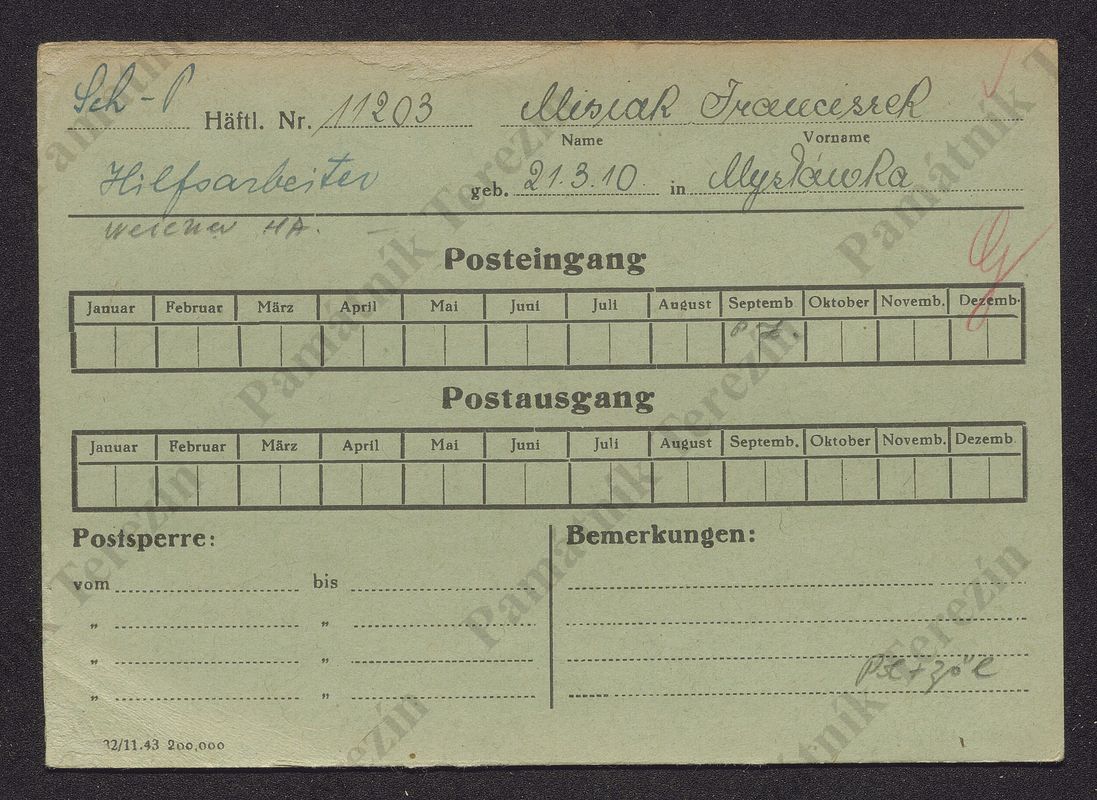 Sch-P Häftl. Nr. 11203 Misiak Franciszek
Name Vorname
Hilfsarbeiter geb. 21.3.10 in Mysłówka
HA. -
Posteingang
Januar Februar März April Mai Juni Juli August Septemb Oktober Novemb. Dezemb.
Postausgang
Januar Februar März April Mai Juni Juli August Septemb. Oktober Novemb. Dezemb
Postsperre: Bemerkungen:
vom bis
„ „
„ „
„ „
32/11.43 200,000
Památník Terezín